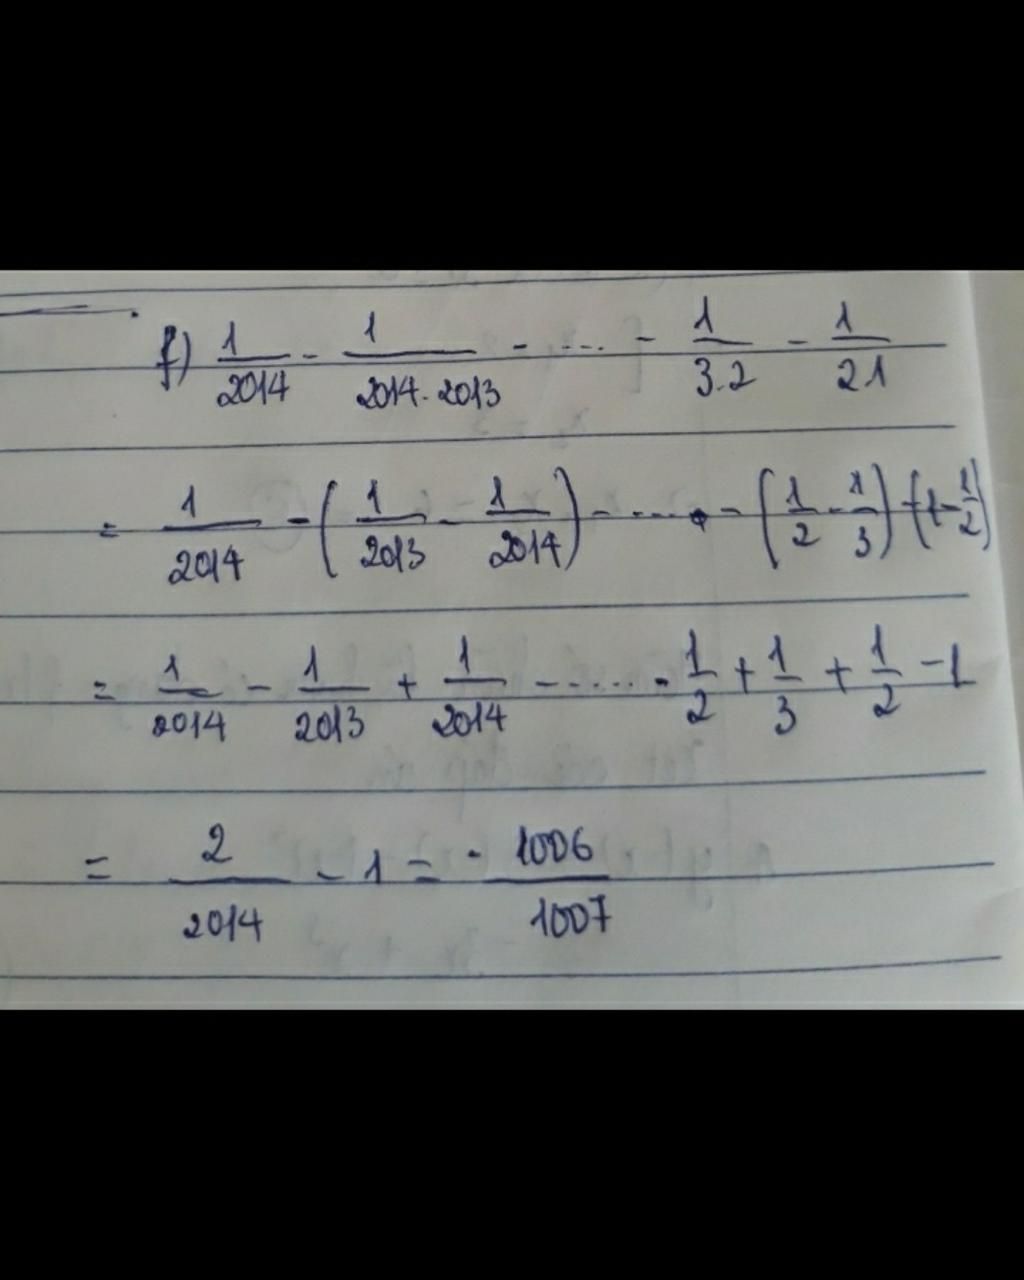 f) 1/2014 - 1/2014.2013 - .... - 1/3.2 - 1/21
= 1/2014 - (1/2013 - 1/2014) - .... - (1/2 - 1/3) - (1 - 1/2)
= 1/2014 - 1/2013 + 1/2014 - ..... - 1/2 + 1/3 + 1/2 - 1
= 2/2014 - 1 = - 1006/1007